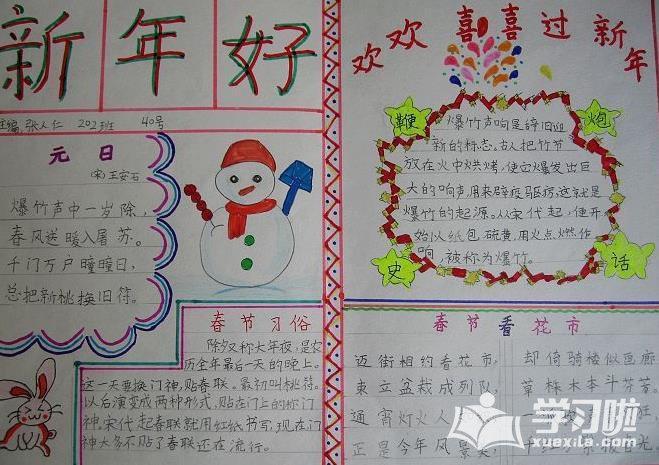 新年好
主编 张人仁 202班 40号
元日
(宋)王安石
爆竹声中一岁除，
春风送暖入屠苏。
千门万户曈曈日，
总把新桃换旧符。
春节习俗
除夕又称大年夜，是农
历全年最后一天的晚上。
这一天要换门神，贴春联。最初叫桃符。
以后演变成两种形式，贴在门上的称门
神，宋代起春联就用红纸书写，现在门
神大多不贴了春联还在流行。
欢欢喜喜过新年
鞭炮史话
爆竹声响是辞旧迎
新的标志。古人把竹节
放在火中烘烤，使立爆发出巨
大的响声用来辟疫驱疠，这就是
爆竹的起源。从宋代起，便开
始以纸包硫黄，用火点燃作
响，被称为爆竹。
春节看花市
迈街相约看花市，
却倚骑楼似画廊
束立盆栽成列队，
草株木本斗芬芳。
通宵灯火人
狂
正是今年风景美
光
学习啦
xuexila.com